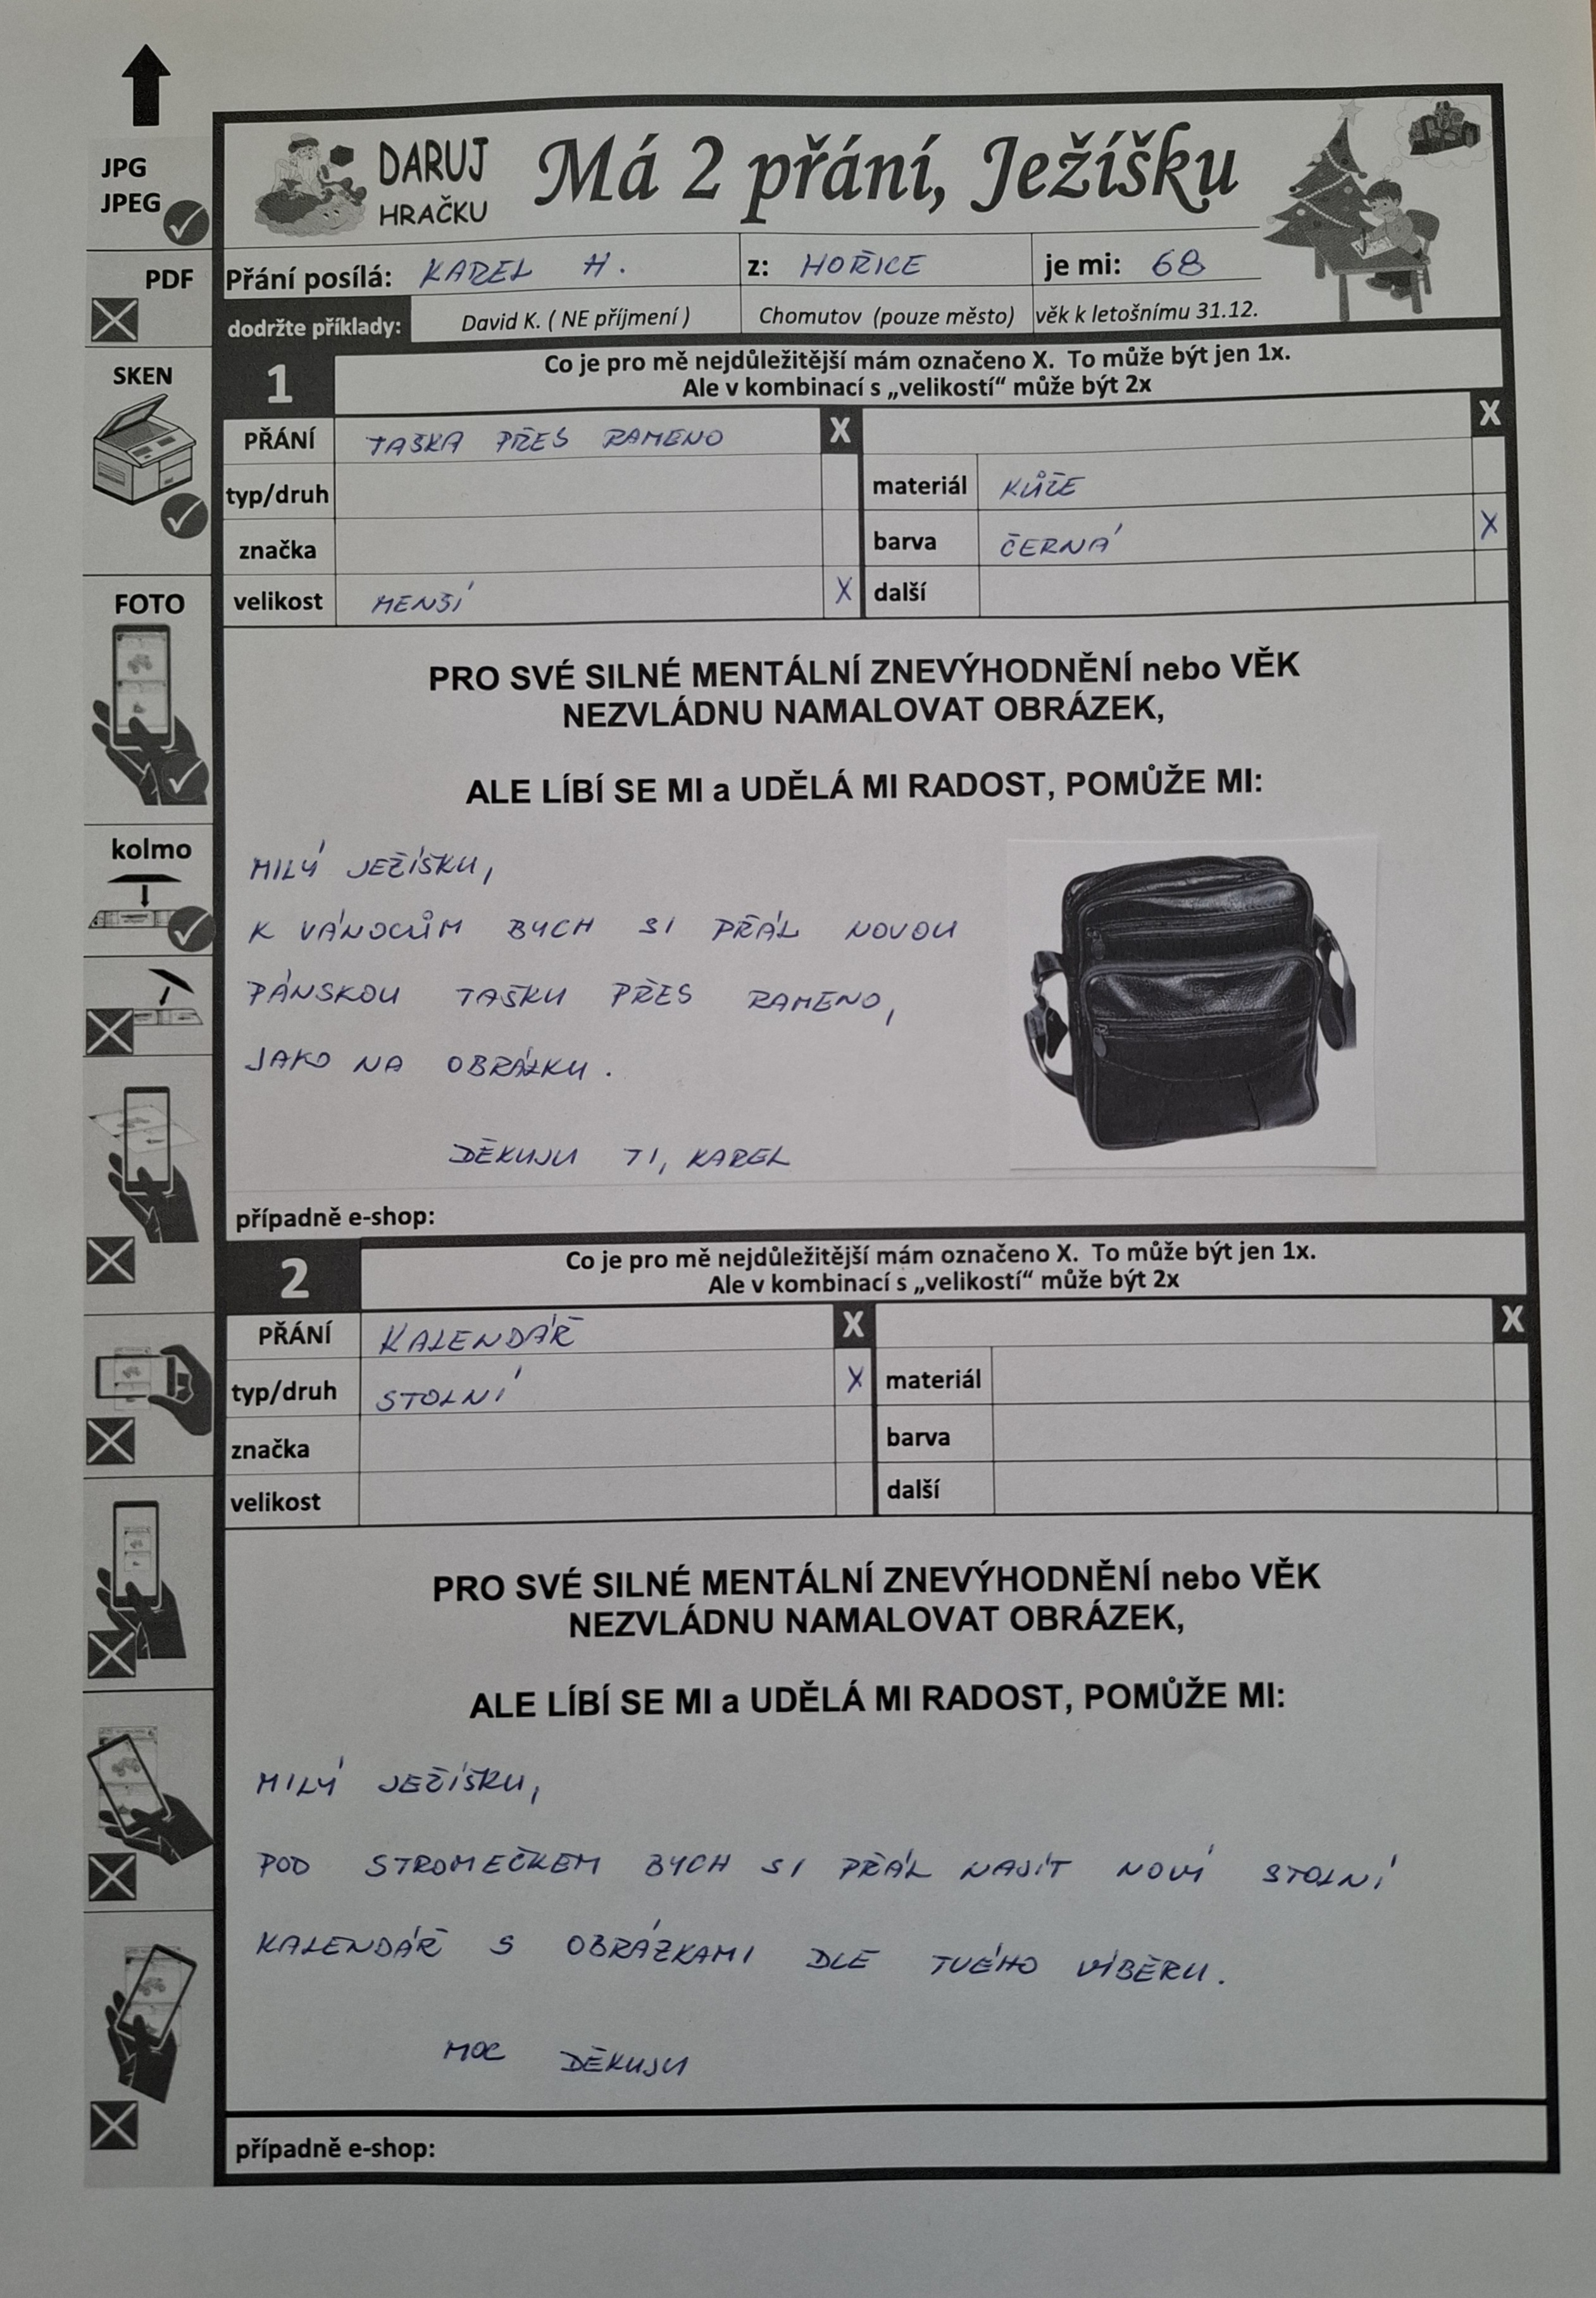 JPG
JPEG
PDF
SKEN
FOTO
kolmo
DARUJ
HRAČKU
Má 2 přání, Ježíšku
Přání posílá: KAREL H. z: HOŘICE je mi: 68
dodržte příklady: David K. ( NE příjmení ) Chomutov (pouze město) věk k letošnímu 31.12.
1 Co je pro mě nejdůležitější mám označeno X. To může být jen 1x.
Ale v kombinací s „velikostí“ může být 2x
PŘÁNÍ TAŠKA PŘES RAMENO X X
typ/druh materiál KŮŽE
značka barva ČERNÁ X
velikost MENŠÍ X další
PRO SVÉ SILNÉ MENTÁLNÍ ZNEVÝHODNĚNÍ nebo VĚK
NEZVLÁDNU NAMALOVAT OBRÁZEK,
ALE LÍBÍ SE MI a UDĚLÁ MI RADOST, POMŮŽE MI:
MILÝ JEŽÍŠKU,
K VÁNOCŮM BYCH SI PŘÁL NOVOU
PÁNSKOU TAŠKU PŘES RAMENO,
JAKO NA OBRÁZKU.
DĚKUJU TI, KAREL
případně e-shop:
2 Co je pro mě nejdůležitější mám označeno X. To může být jen 1x.
Ale v kombinací s „velikostí“ může být 2x
PŘÁNÍ KALENDÁŘ X X
typ/druh STOLNÍ X materiál
značka barva
velikost další
PRO SVÉ SILNÉ MENTÁLNÍ ZNEVÝHODNĚNÍ nebo VĚK
NEZVLÁDNU NAMALOVAT OBRÁZEK,
ALE LÍBÍ SE MI a UDĚLÁ MI RADOST, POMŮŽE MI:
MILÝ JEŽÍŠKU,
POD STROMEČKEM BYCH SI PŘÁL NAJÍT NOVÝ STOLNÍ
KALENDÁŘ S OBRÁZKAMI DLE TVÉHO VÝBĚRU.
MOC DĚKUJU
případně e-shop: